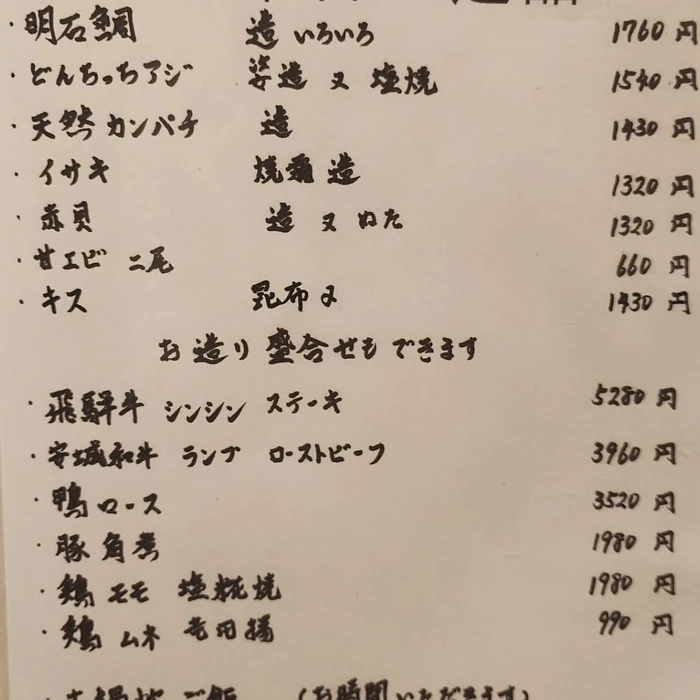 ・明石鯛 造 いろいろ 1760円
・どんちっちアジ 姿造 又 塩焼 1540円
・天然カンパチ 造 1430円
・イサキ 焼霜造 1320円
・赤貝 造 又 ぬた 1320円
・甘エビ 二尾 660円
・キス 昆布〆 1430円
お造り盛合せもできます
・飛騨牛 シンシン ステーキ 5280円
・安城和牛 ランプ ローストビーフ 3960円
・鴨ロース 3520円
・豚角煮 1980円
・鶏モモ 塩糀焼 1980円
・鶏ムネ 竜田揚 990円
ご飯 (お時間いただきます)